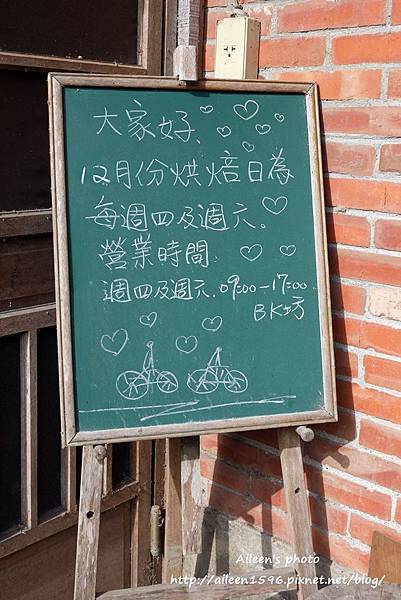 大家好、
12月份烘焙日為
每週四及週六。
營業時間:
週四及週六. 09:00-17:00
BK坊
Aileen's photo
http://aileen1596.pixnet.net/blog/